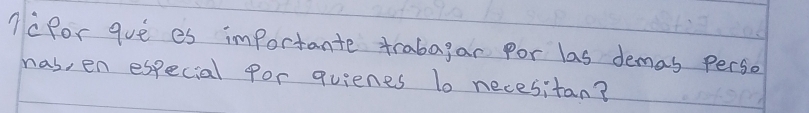 1¿Por qué es importante trabajar por las demas perso
nas, en especial por quienes lo necesitan?